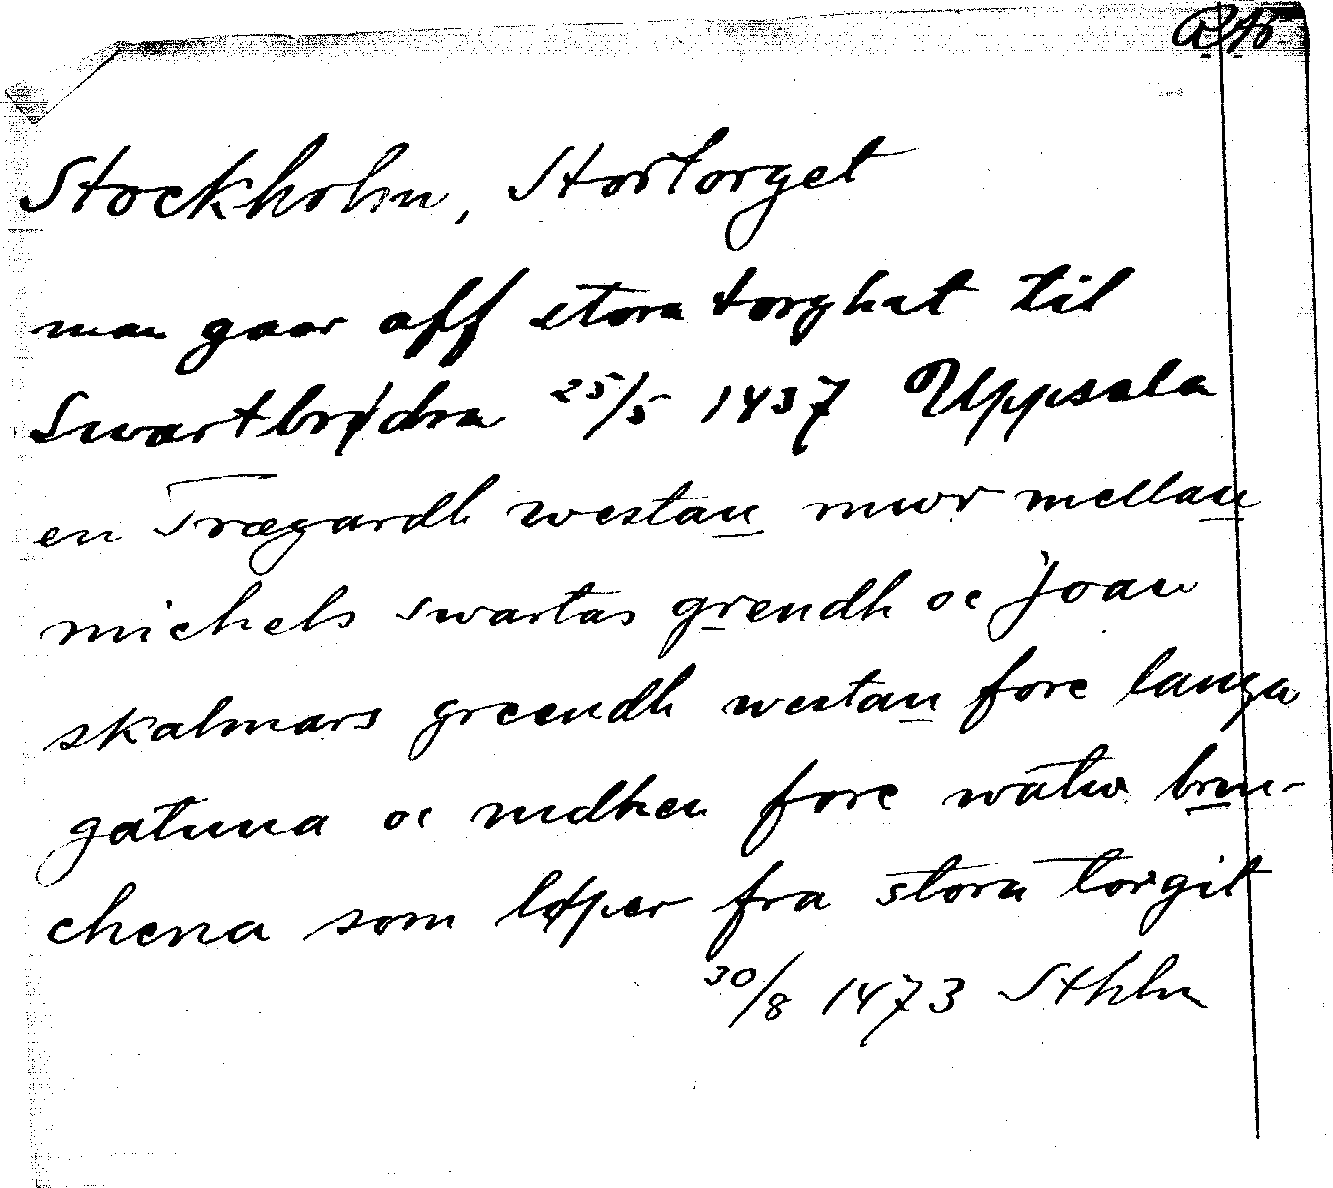 Stockholm, Stortorget
man gaar aff stora torghat til
Swartbrødra 25/5 1437 Uppsala
en Trægardh westan mwr mellan
michels swartas grendh oc Joan
skalmars greendh westan fore langa
gatuna oc nidhen fore watw brun-
chena som løper fra stora torgit
30/8 1473 Sthlm